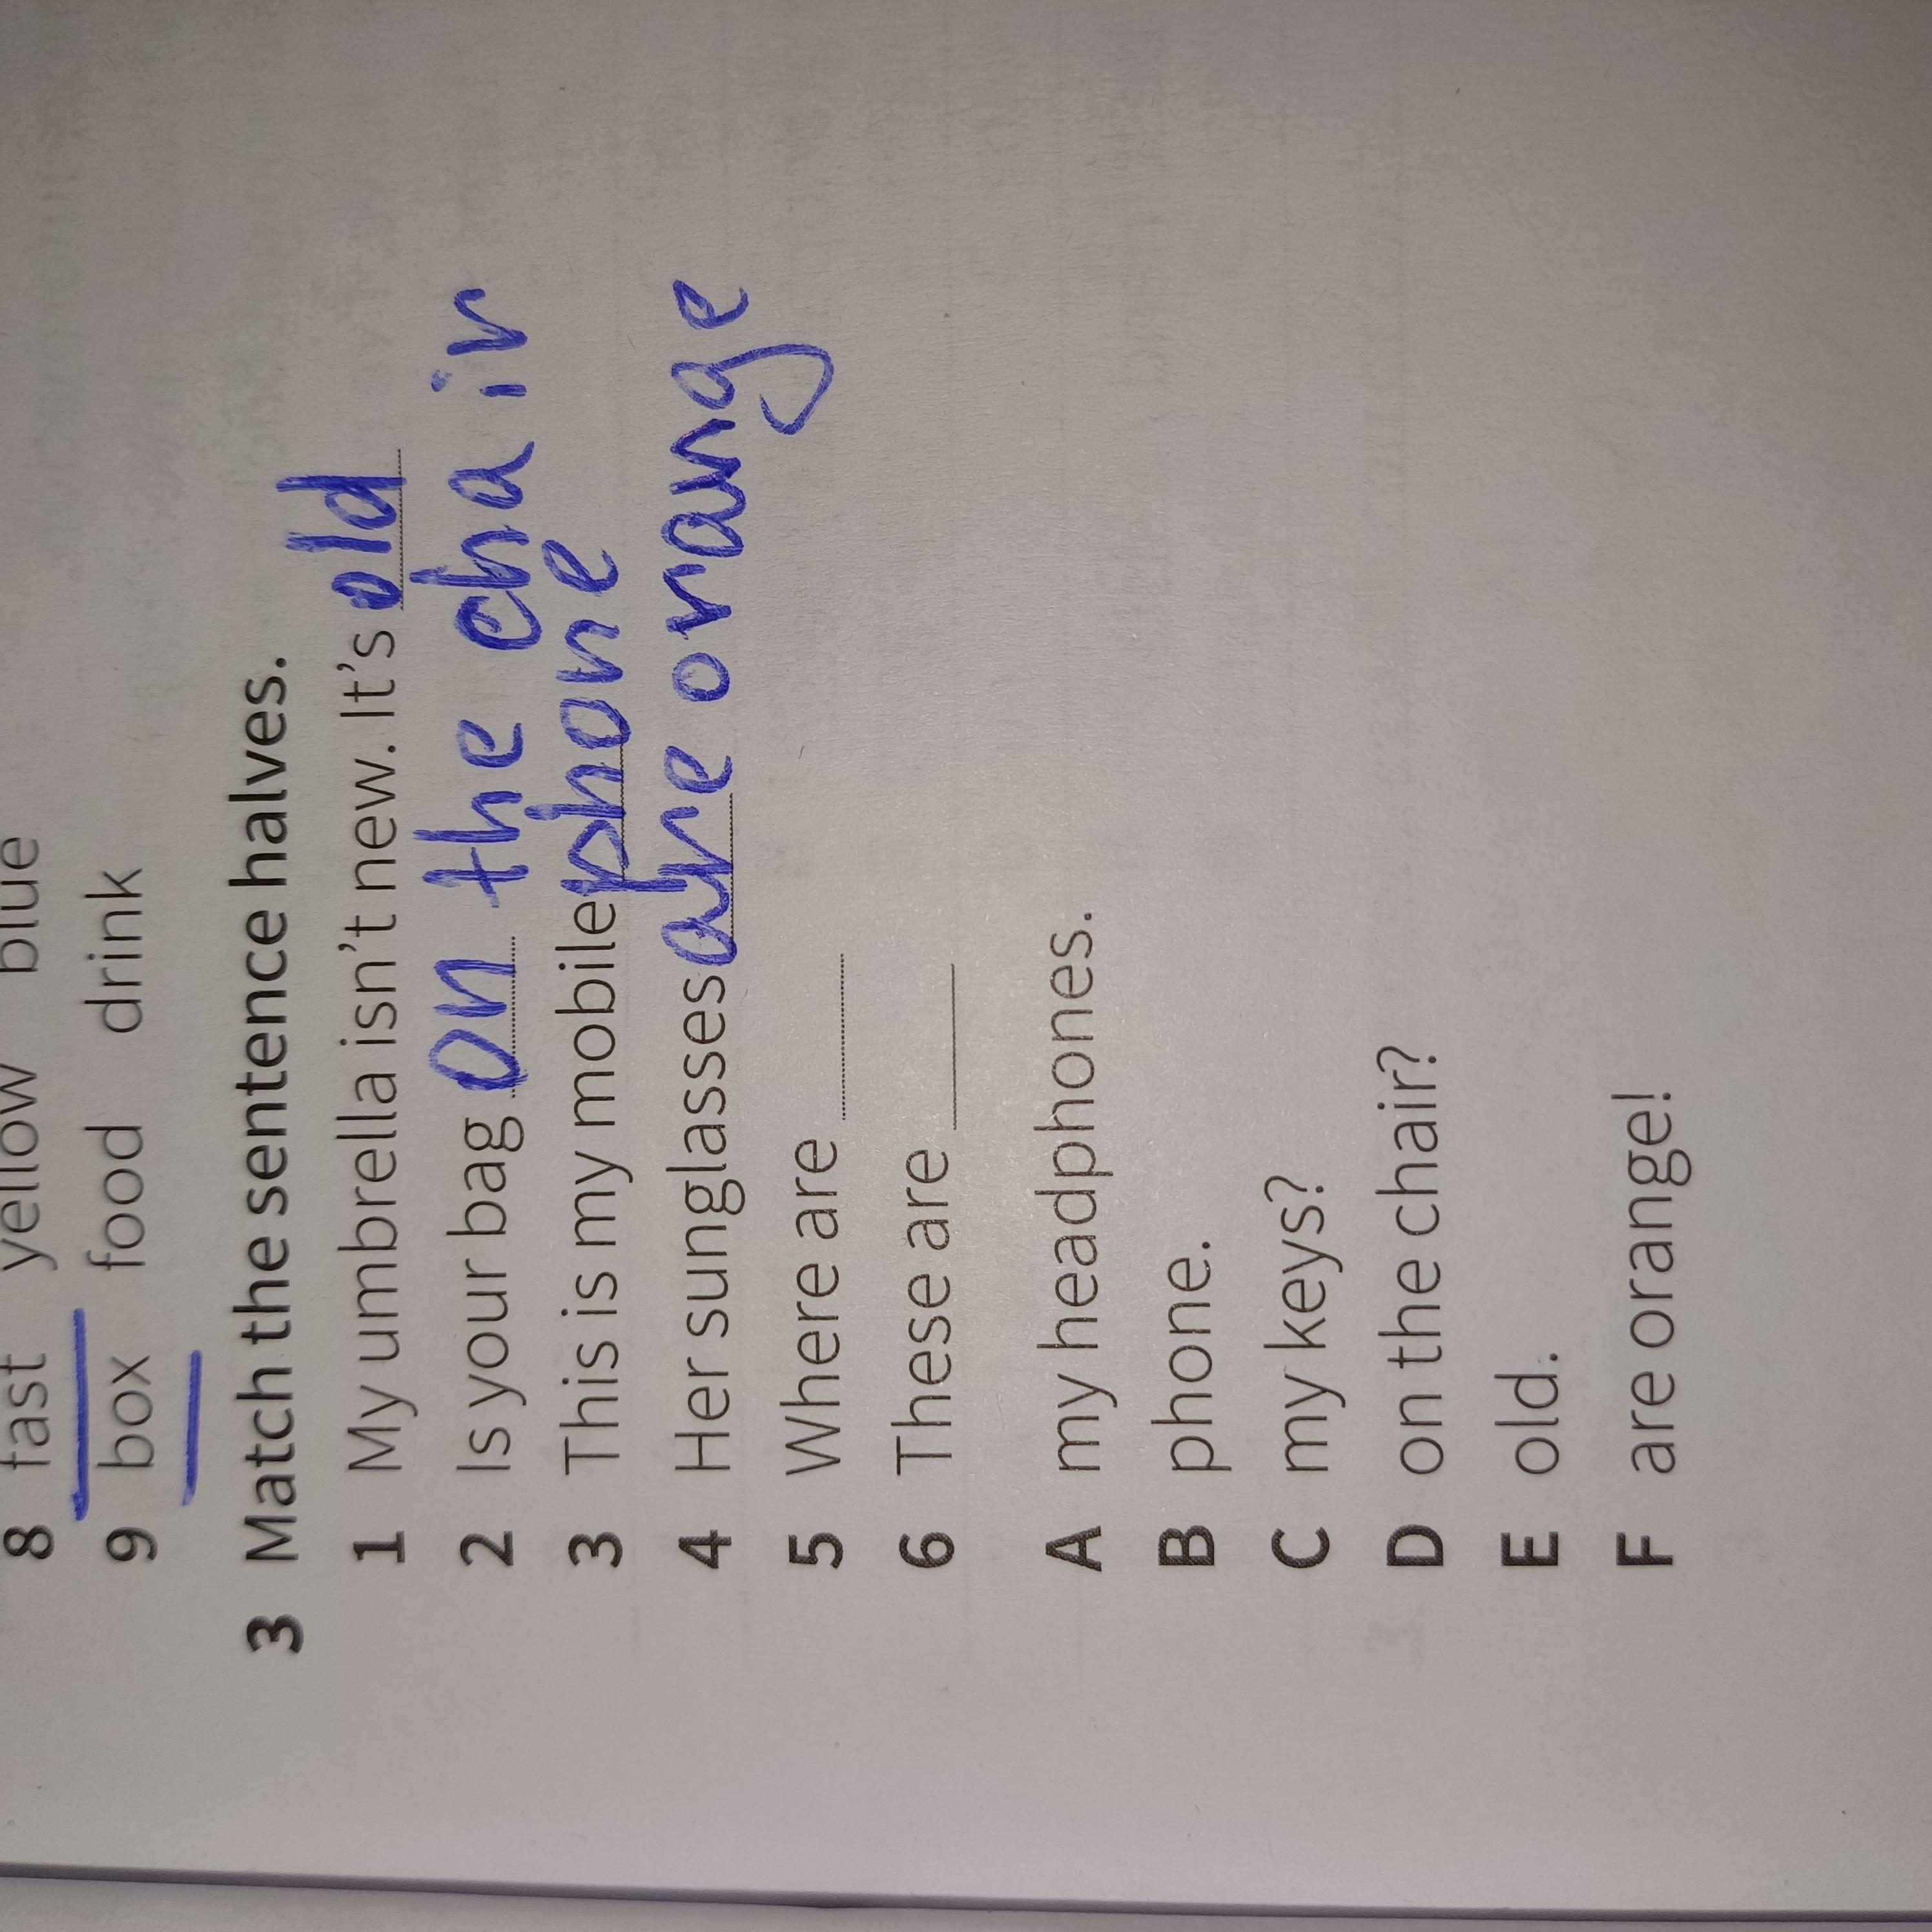 8 fast yellow blue
9 box food drink
3 Match the sentence halves.
1 My umbrella isn't new. It's old
2 Is your bag on the chair
3 This is my mobile phone
4 Her sunglasses are orange
5 Where are
6 These are
A my headphones.
B phone.
C my keys?
D on the chair?
E old.
F are orange!